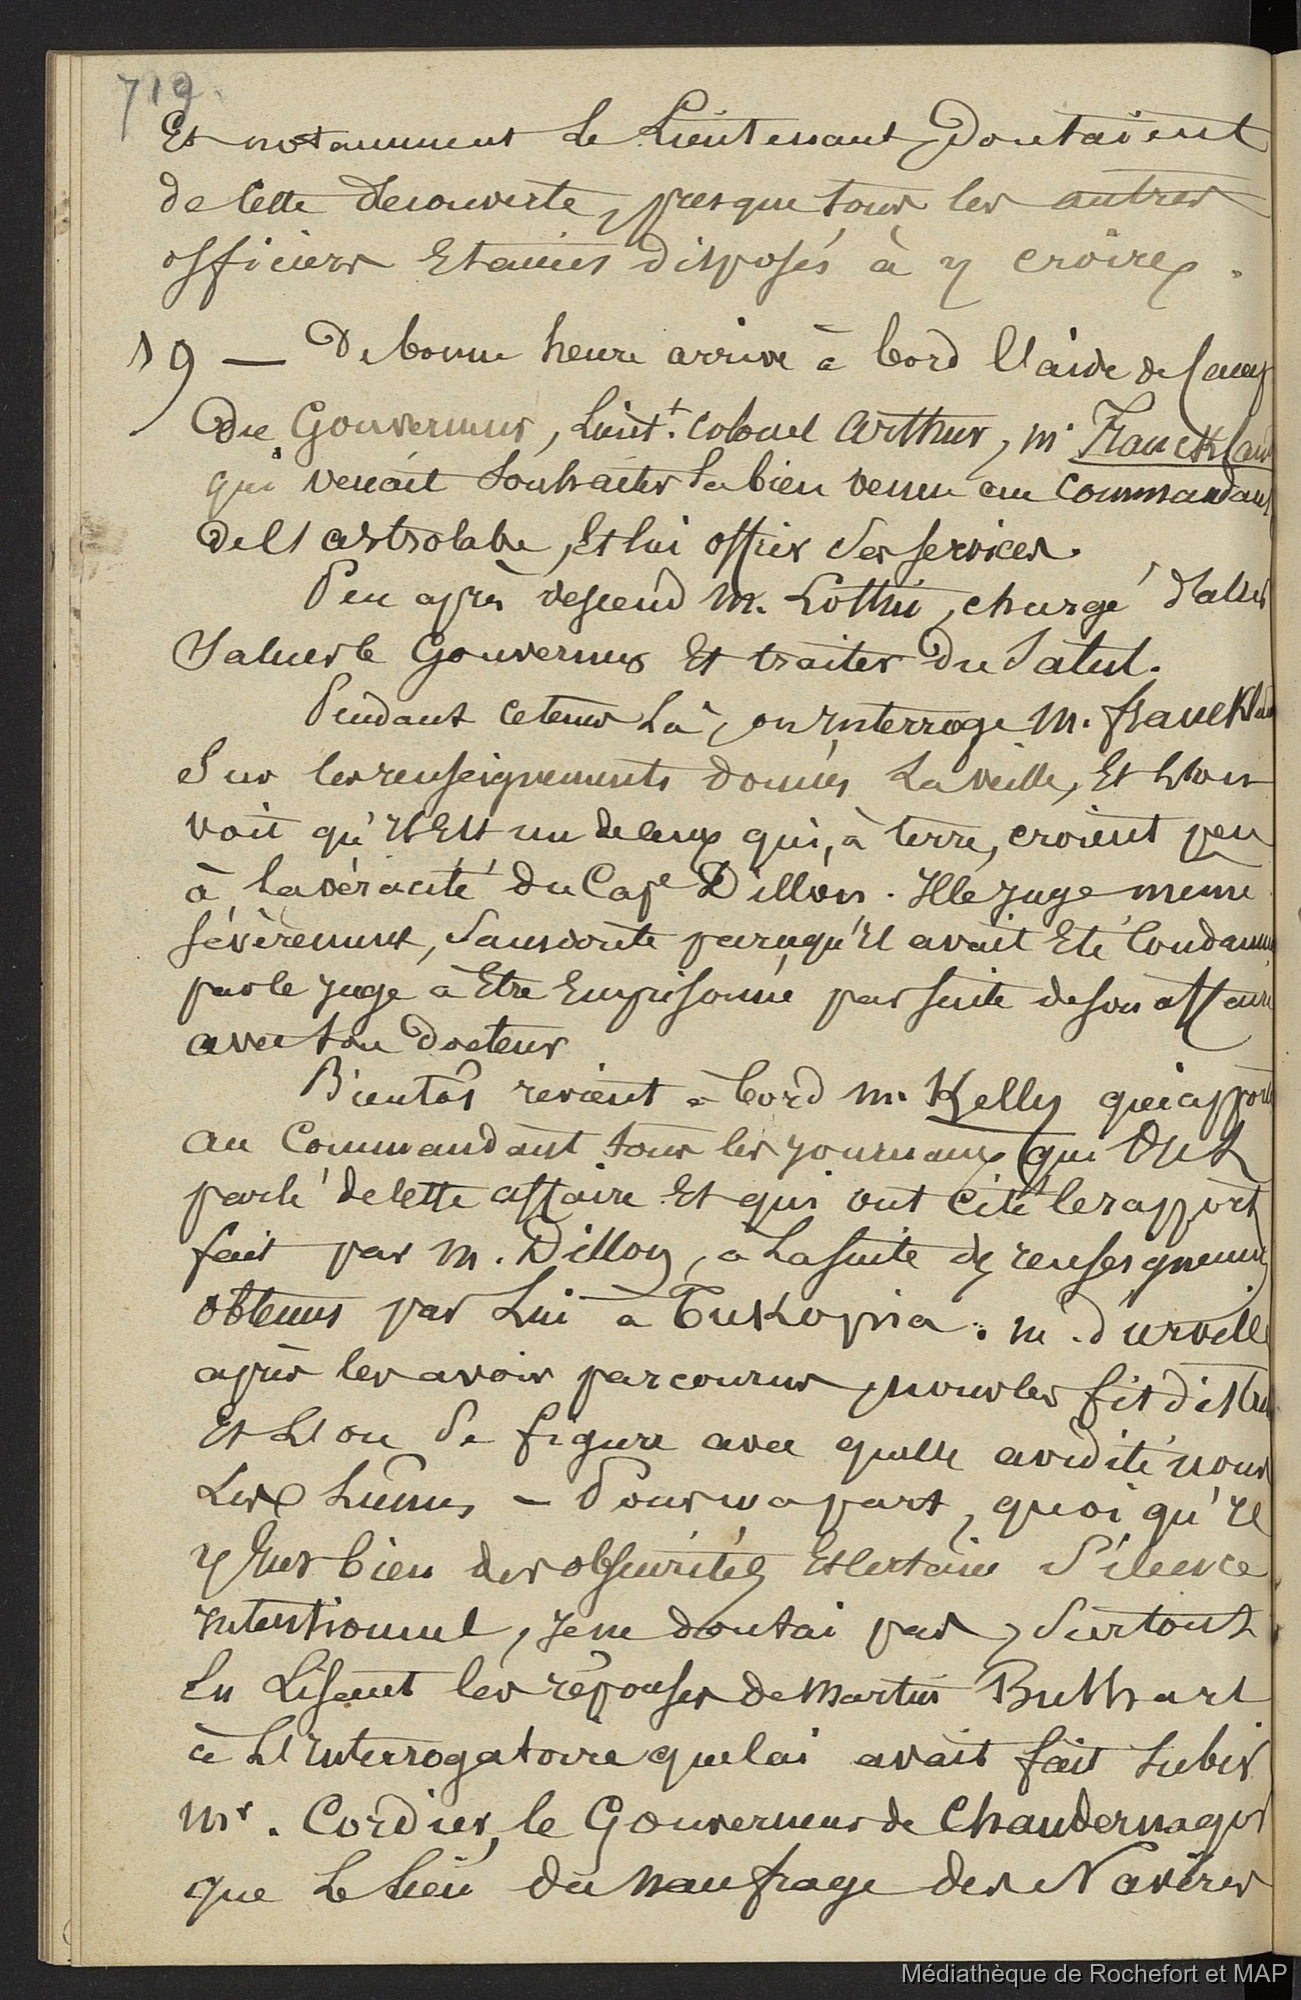 719
Et notamment le Lieutenant, doutaient
de cette decouverte, presque tous les autres
officiers Etaient disposés à y croire.
19 — De bonne heure arrive à bord l'aide de Camp
du Gouverneur, Lieut.t colonel Arthur, mr Franckland
qui venait souhaiter la bien venue au Commandant
de l'astrolabe, Et lui offrir ses services.
Peu après descend M. Lottin, chargé d'aller
saluer le Gouverneur Et traiter du Salut.
Pendant ce tems là, on Interroge M. franckland
Sur les renseignements donnés la veille, Et l'on
voit qu'Il Est un de ceux qui, à terre, croient peu
à la véracité du Cape Dillon. Il le juge meme
sévèrement, sans doute parcequ'Il avait Eté Condamné
par le juge à Etre Emprisonné par suite de son affaire
avec son docteur
Bientôt revient à bord M. Kelly qui apporte
au Commandant tous les journaux qui Ont
parlé de cette affaire Et qui ont cité le rapport
fait par M. Dillon, à la suite des renseignements
obtenus par Lui à Tukopia. M. d'urville
après les avoir parcourus, nous les fit distribuer
Et l'on se figure avec quelle avidité nous
Les lûmes — Pour ma part, quoi qu'Il
y Eut bien des obscurités Et certain Silence
Intentionnel, je ne doutai pas, surtout
En Lisant les réponses de Martin Bushart
à l'Interrogatoire que lui avait fait subir
Mr. Cordier, le Gouverneur de Chandernagor
que le lieu du naufrage des Navires
Médiathèque de Rochefort et MAP